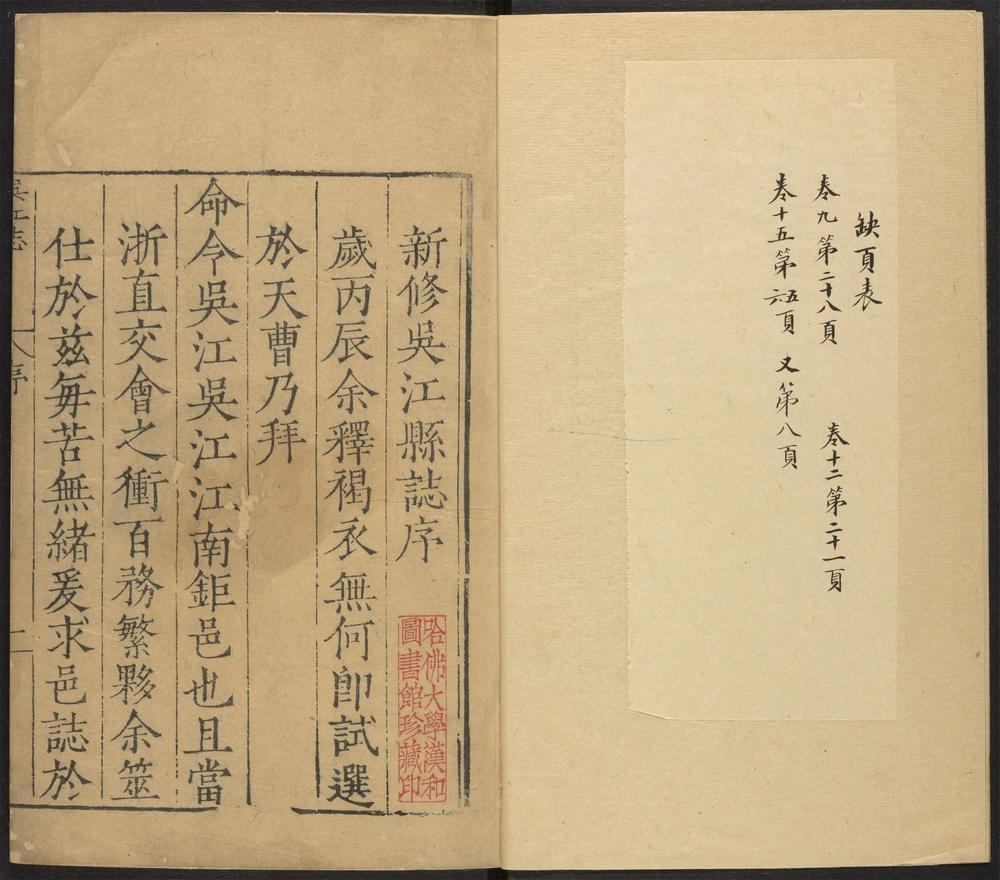 缺頁表
卷九第二十八頁 卷十二第二十一頁
卷十五第五六頁 又第八頁
新修吳江縣誌序
哈佛大學漢和
圖書館珍藏印
歲丙辰余釋褐衣無何卽試選
於天曹乃拜
命令吳江吳江江南鉅邑也且當
浙直交會之衝百務繁夥余筮
仕於茲每苦無緒爰求邑誌於
吳江志 序 一